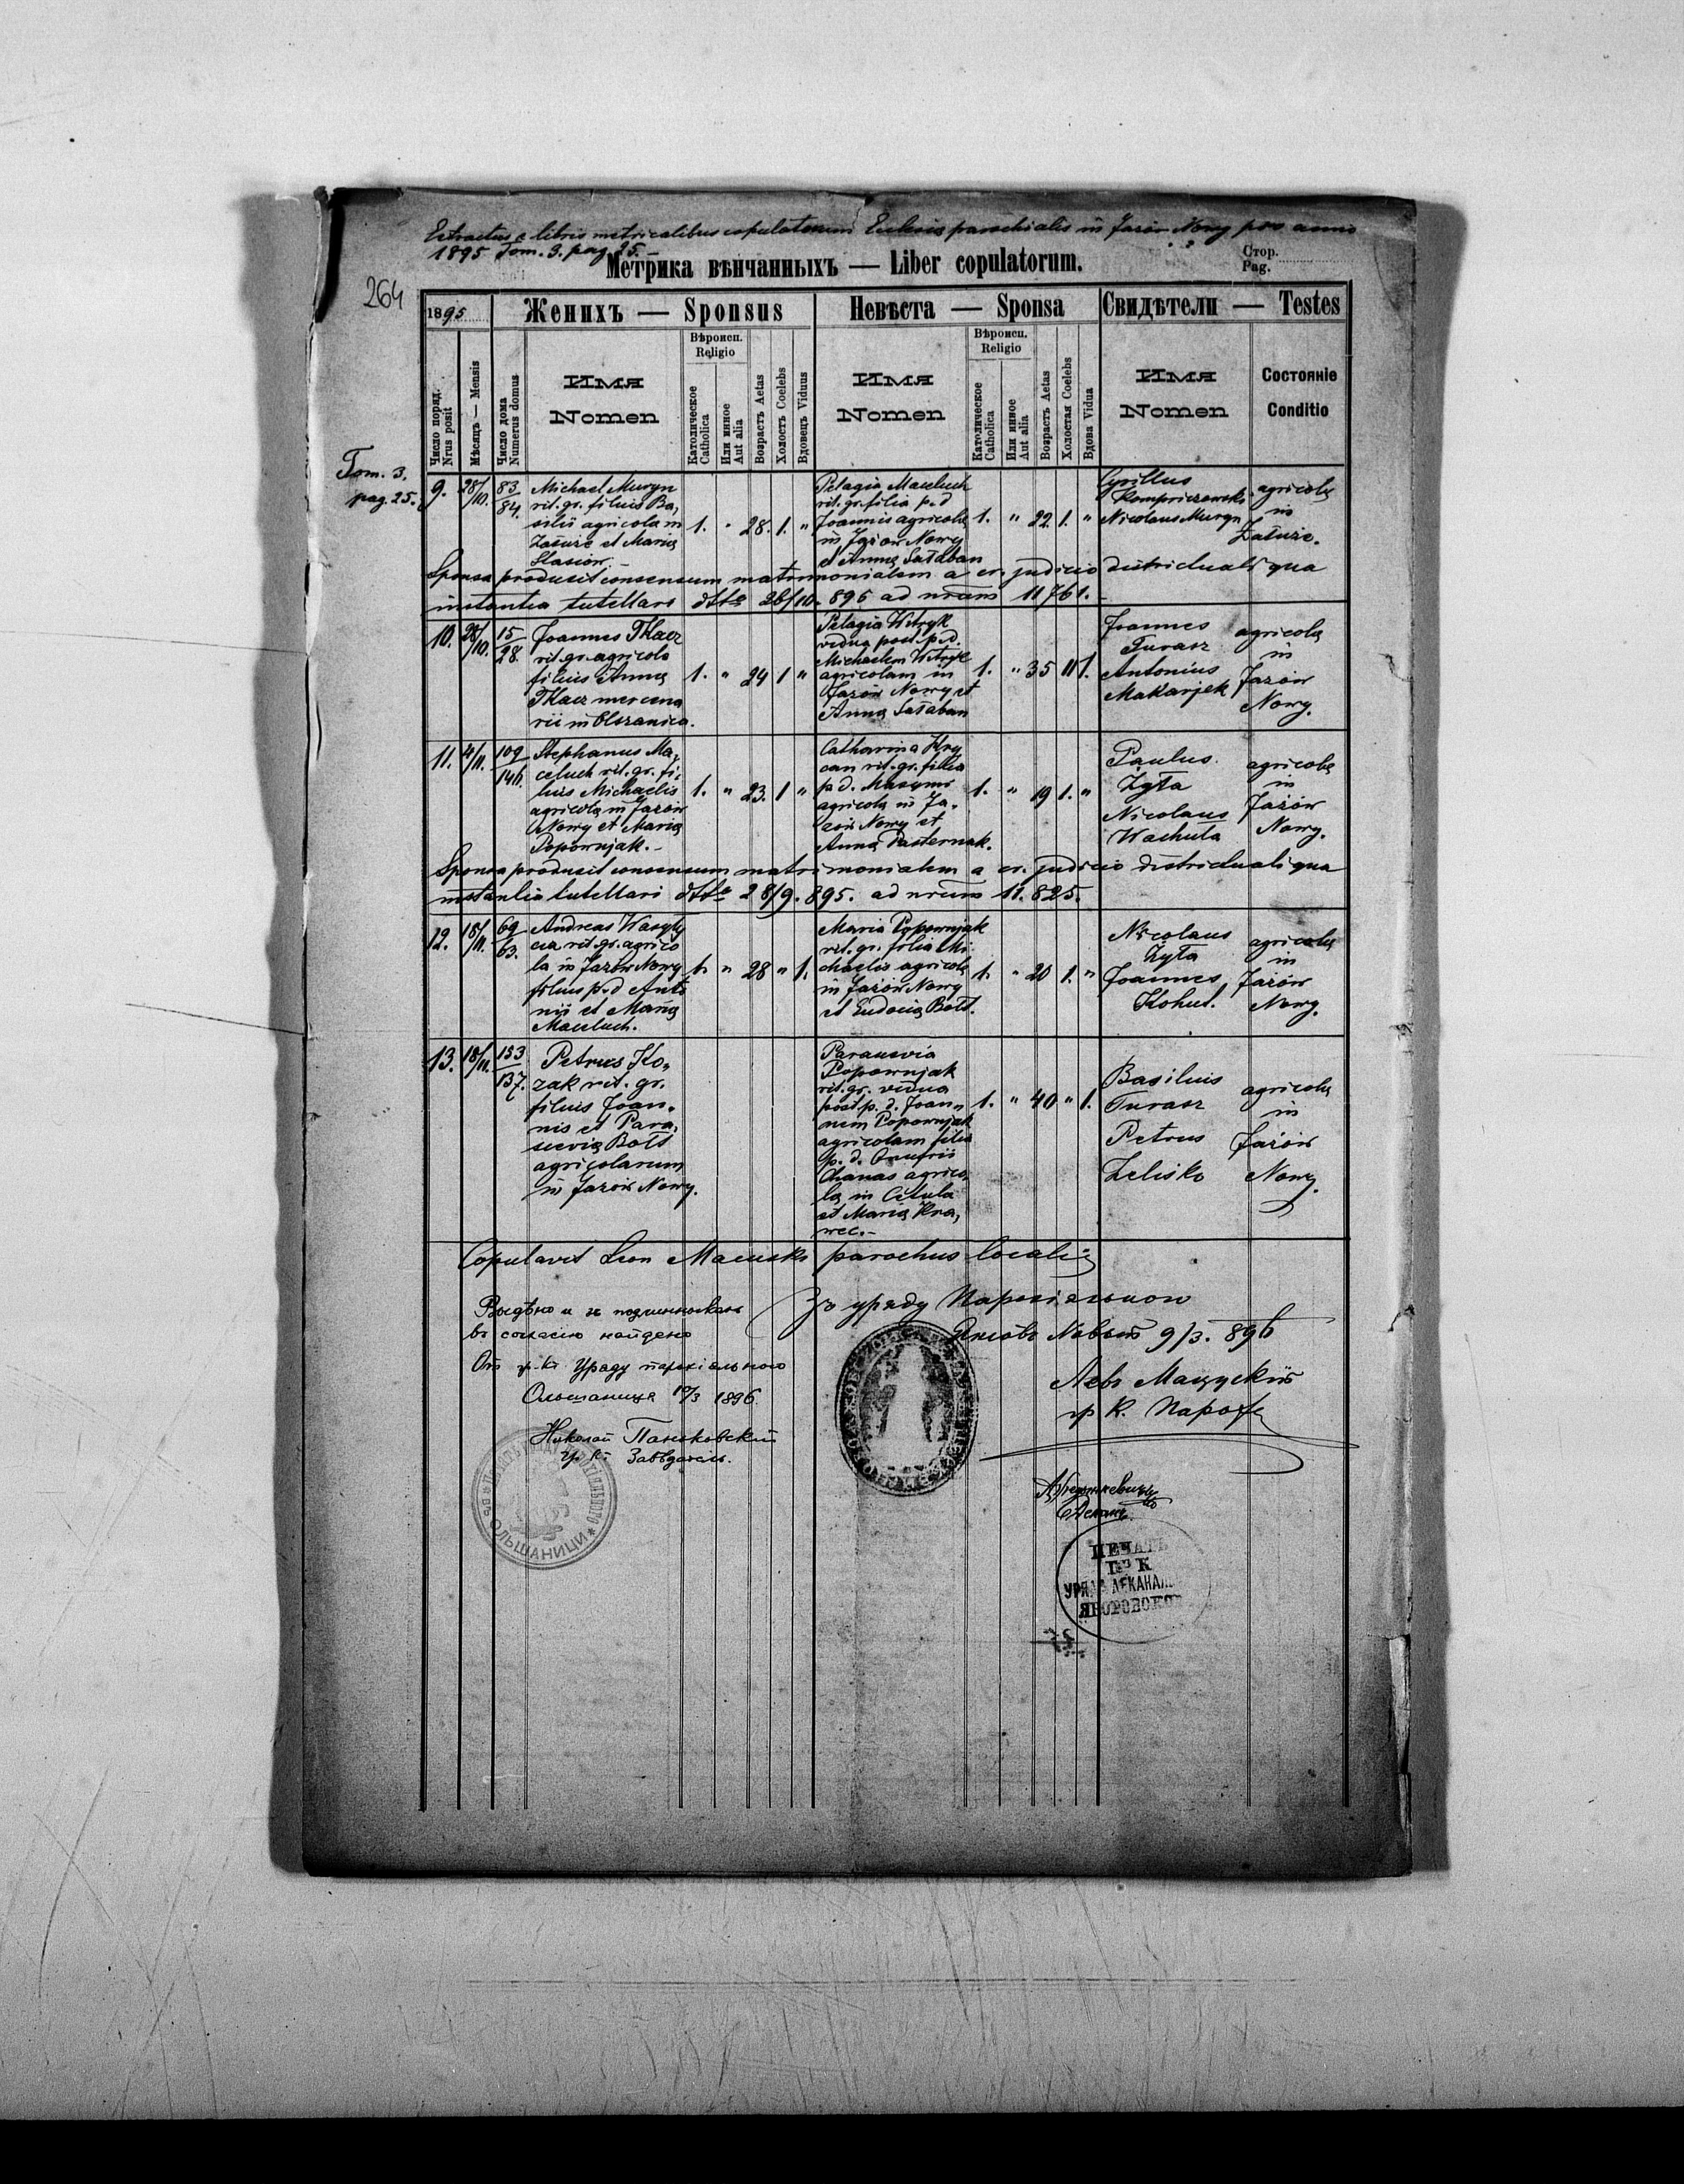 Extractus e libris metricalibus copulatorum Ecclesia parochialis in Jazów Nowy pro anno
1895 Tom. 3. pag 25. –
264
Метрика вѣнчанныхъ — Liber copulatorum.
Стор.
Pag.
1895
Женихъ — Sponsus
Невѣста — Sponsa
Свидѣтели — Testes
Число поряд.
Nrus posit
Мѣсяцъ — Mensis
Число дома
Numerus domus
Имя
Nomen
Вѣроисп.
Religio
Католическое
Catholica
Или инное
Aut alia
Возрастъ Aetas
Холостъ Coelebs
Вдовецъ Viduus
Имя
Nomen
Вѣроисп.
Religio
Католическое
Catholica
Или инное
Aut alia
Возрастъ Aetas
Холостая Coelebs
Вдова Vidua
Имя
Nomen
Состоянiе
Conditio
Tom. 3.
pag. 25.
9.
28/10.
83
84.
Michael Muryn
rit. gr. filius Ba,
silii agricola in
Załuże et Maria
Stasiów.
1. " 28. 1. "
Pelagia Maceluch
rit. gr. filia p. d
Joannis agricola
in Jazów Nowy
et Anna Sałaban
1. " 22. 1. "
Cyrillus
Nicolaus Muryn
agricola
in
Załuże.
Sponsa produxit consensum matrimonialem a cr. judicio districtuali qua
instantia tutellari dtto 26/10. 896 ad nrum 11761. –
10.
28/10.
15
28.
Joannes Tkacz
rit. gr. agricola
filius Anna
Tkacz mercena
rii in Olszanica.
1. " 24 1 "
Pelagia Witryk
vidua post p. d.
Michaelem Witryk
agricolam in
Jazów Nowy et
Anna Sałaban
1. " 35 " 1.
Joannes
Turasz
Antonius
Makarjek
agricola
in
Jazów
Nowy.
11.
4/11.
109
146.
Stephanus Ma,
celuch rit. gr. fi,
lius Michaelis
agricola in Jazów
Nowy et Maria
Popownjak. –
1. " 23. 1 "
Catharina Hry
can rit. gr. filia
p d. Maxymi
agricola in Ja,
zów Nowy et
Anna Pasternak.
1. " 19 1. "
Paulus
Zyła
Nicolaus
Wachuta
agricola
in
Jazów
Nowy.
Sponsa produxit consensum matrimonialem a cr. judicio districtuali qua
instantia tutellari dtto 28/9. 895. ad nrum 11. 825.
12.
18/11.
69
63.
Andreas Wasyly
cia rit. gr. agrico
la in Jazów Nowy
filius p. d Anto
nii et Maria
Maceluch.
1. " 28 " 1.
Maria Popownjak
rit. gr. filia Mi
chaelis agricola
in Jazów Nowy
et Eudocia Bołt.
1. " 20 1. "
Nicolaus
Zyła
Joannes
Kohut.
agricola
in
Jazów
Nowy.
13.
18/11.
153
137.
Petrus Ko,
zak rit. gr.
filius Joan,
nis et Para,
scevia Bołt
agricolarum
in Jazów Nowy.
Parascevia
Popownjak
rit. gr. vidua
post p. d. Joan,
nem Popownjak
agricolam filia
p. d. Onufrii
Chanas agrico,
la in Cetula
et Maria Kra,
wec. –
1. " 40 " 1.
Basilius
Turasz
Petrus
Zelisko
agricola
in
Jazów
Nowy.
Copulavit Leon Maciuski parochus localis
въ согласію найдено
От гр. кт Уряду парохіяльного
Ольшаница 10/3 1896.
Николай Паньковскій
гр кт Завѣдатель.
Зъ уряду Парохіяльного
Язовъ Новый 9/3. 896
Левъ Мацускій
гр К. Парохъ
Деканъ.
ОЛЬШАНИЦИ
ПЕЧАТЬ
ГР К
УРЯДА ДЕКАНАЛ
ЯВОРОВСКО